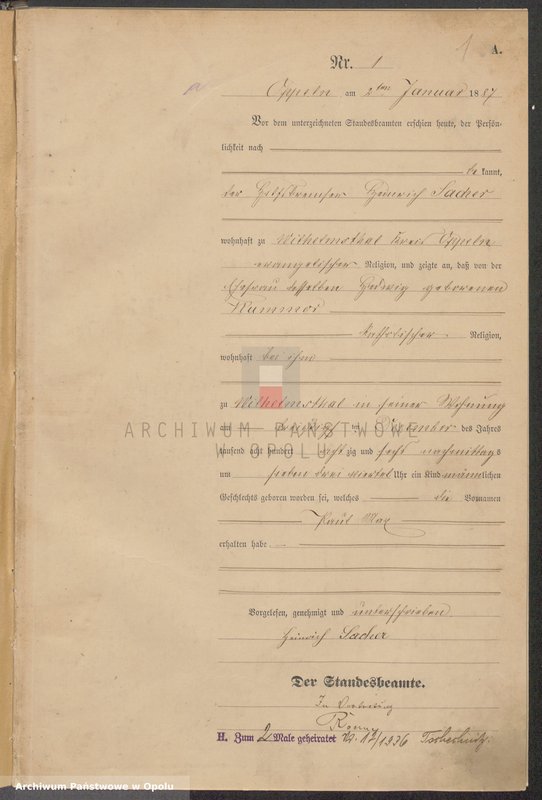 1 A.
Nr. 1
Oppeln am 2ten Januar 1887
Vor dem unterzeichneten Standesbeamten erschien heute, der Persön-
lichkeit nach
be kannt,
der Hilfsbremser Heinrich Sacher
wohnhaft zu Wilhelmsthal Kreis Oppeln
evangelischer Religion, und zeigte an, daß von der
Ehefrau desselben Hedwig geborenen
katholischer Religion,
wohnhaft bei ihm
zu Wilhelmsthal in seiner Wohnung
am ten Dezember des Jahres
tausend acht hundert achtzig und sechs nachmittags
um sieben drei viertel Uhr ein Kind männlichen
Geschlechts geboren worden sei, welches die Vornamen
Paul Max
erhalten habe.
Vorgelesen, genehmigt und unterschrieben
Heinrich Sacher
Der Standesbeamte.
In Vertretung
H. Zum 2 Male geheiratet Nr. 17/1936
ARCHIWUM PAŃSTWOWE
OPOLU
Archiwum Państwowe w Opolu